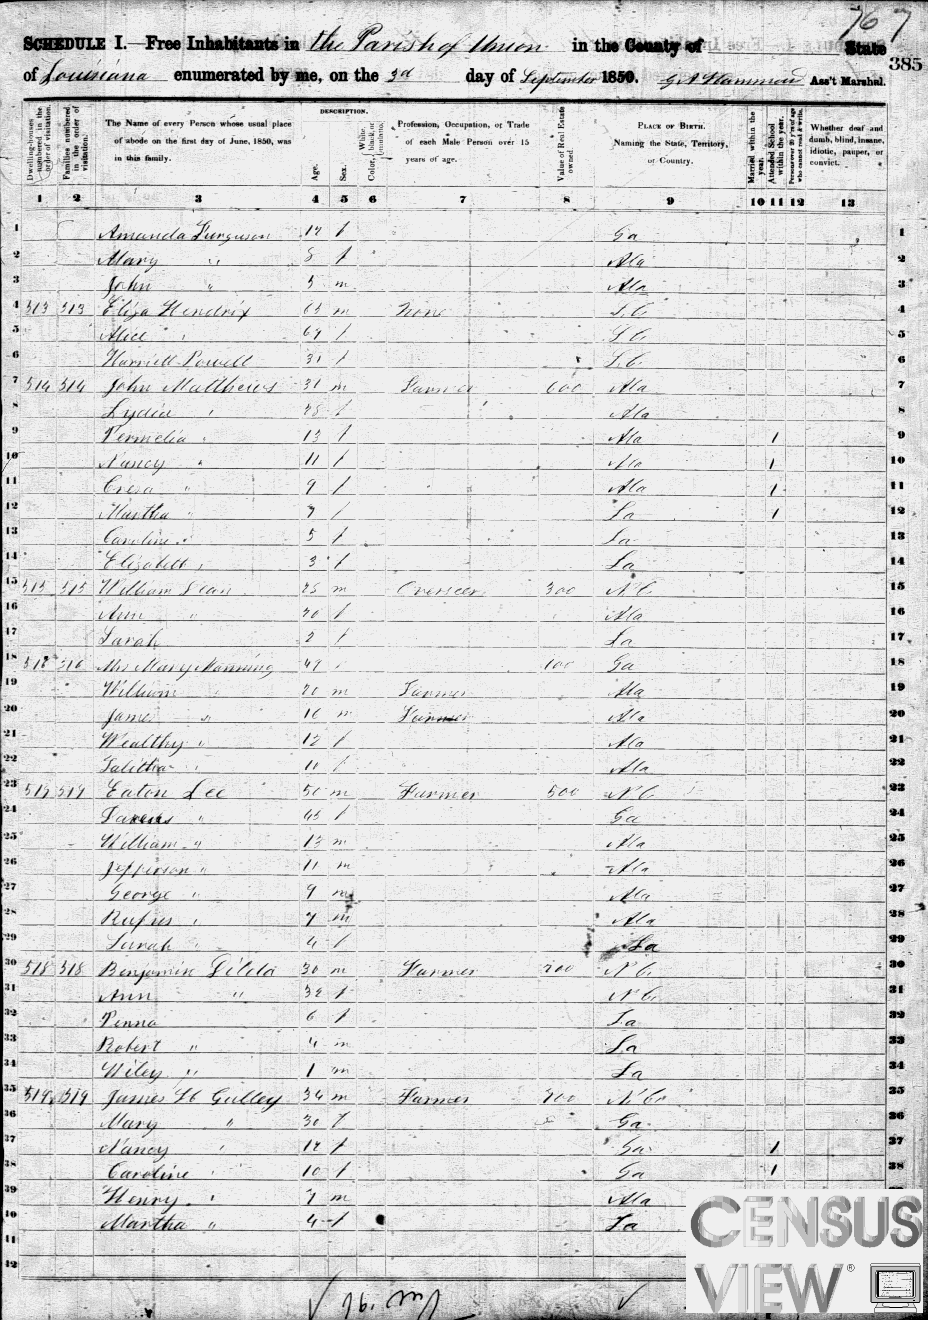 767
SCHEDULE I.—Free Inhabitants in the Parish of Union in the County of State
385
of Louisiana enumerated by me, on the 3d day of September 1850. Ass't Marshal.
Dwelling-houses numbered in the order of visitation.
Families numbered in the order of visitation.
The Name of every Person whose usual place of abode on the first day of June, 1850, was in this family.
DESCRIPTION.
Age.
Sex.
Color, White, black, or mulatto.
Profession, Occupation, or Trade of each Male Person over 15 years of age.
Value of Real Estate owned.
PLACE OF BIRTH.
Naming the State, Territory, or Country.
Married within the year.
Attended School within the year.
Persons over 20 y'rs of age who cannot read & write.
Whether deaf and dumb, blind, insane, idiotic, pauper, or convict.
1 2 3 4 5 6 7 8 9 10 11 12 13
1 Amanda Ferguson f Ga 1
2 Mary " f Ala 2
3 John " 3 m Ala 3
4 513 513 Hendrix m None S.C 4
5 Alice " f S C 5
6 Harriett Powell 31 f S.C 6
7 514 514 John Matthews 31 m Farmer 600 Ala 7
8 Lydia " 28 f Ala 8
9 Permelia " 13 f Ala 1 9
10 Nancy " 11 f Ala 1 10
11 " 9 f Ala 1 11
12 Martha " 7 f La 1 12
13 Caroline " 5 f La 13
14 Elizabeth " 3 f La 14
15 515 515 William 25 m Overseer 300 N C 15
16 Ann " 20 f Ala 16
17 Sarah 2 f La 17
18 Mrs Mary Manning 49 100 Ga 18
19 William " 20 m Farmer Ala 19
20 James " 16 m Farmer Ala 20
21 Wealthy " 12 f Ala 21
22 Talitha " 11 f Ala 22
23 Eaton Lee 50 m Farmer 500 N C 23
24 " 45 f Ga 24
25 William " 13 m Ala 25
26 Jefferson " 11 m Ala 26
27 George " 9 m Ala 27
28 Rufus " 7 m Ala 28
29 Sarah " 4 f La 29
30 518 518 Benjamin 30 m Farmer 200 N C. 30
31 Ann " 32 f N C. 31
32 Penna 6 f La 32
33 Robert " 4 m La 33
34 Wiley " 1 m La 34
35 519 519 James Gulley 34 m Farmer 200 N C 35
36 Mary " 30 f Ga 36
37 Nancy " 12 f Ga 1 37
38 Caroline " 10 f Ga 1 38
39 Henry " 7 m Ala
40 Martha " 4 f La
41
42
CENSUS
VIEW®